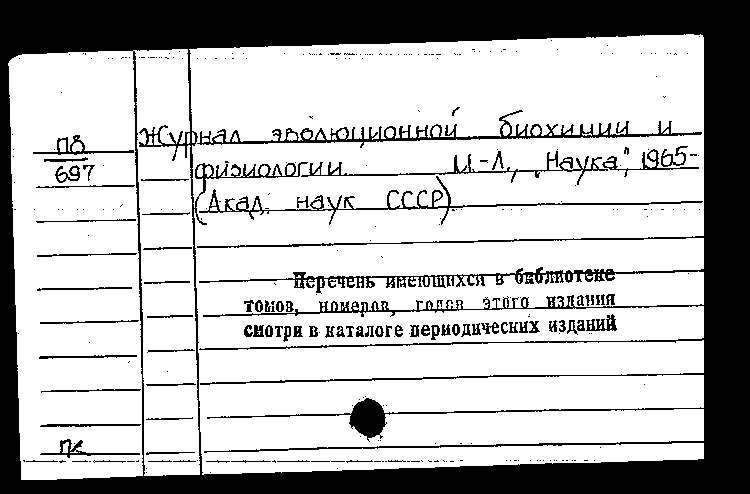 П8
697
Журнал эволюционной биохимии и
физиологии. М.-Л., „Наука", 1965-
(Акад. наук СССР)
Перечень имеющихся в библиотеке
томов, номеров, годов этого издания
смотри в каталоге периодических изданий
пк